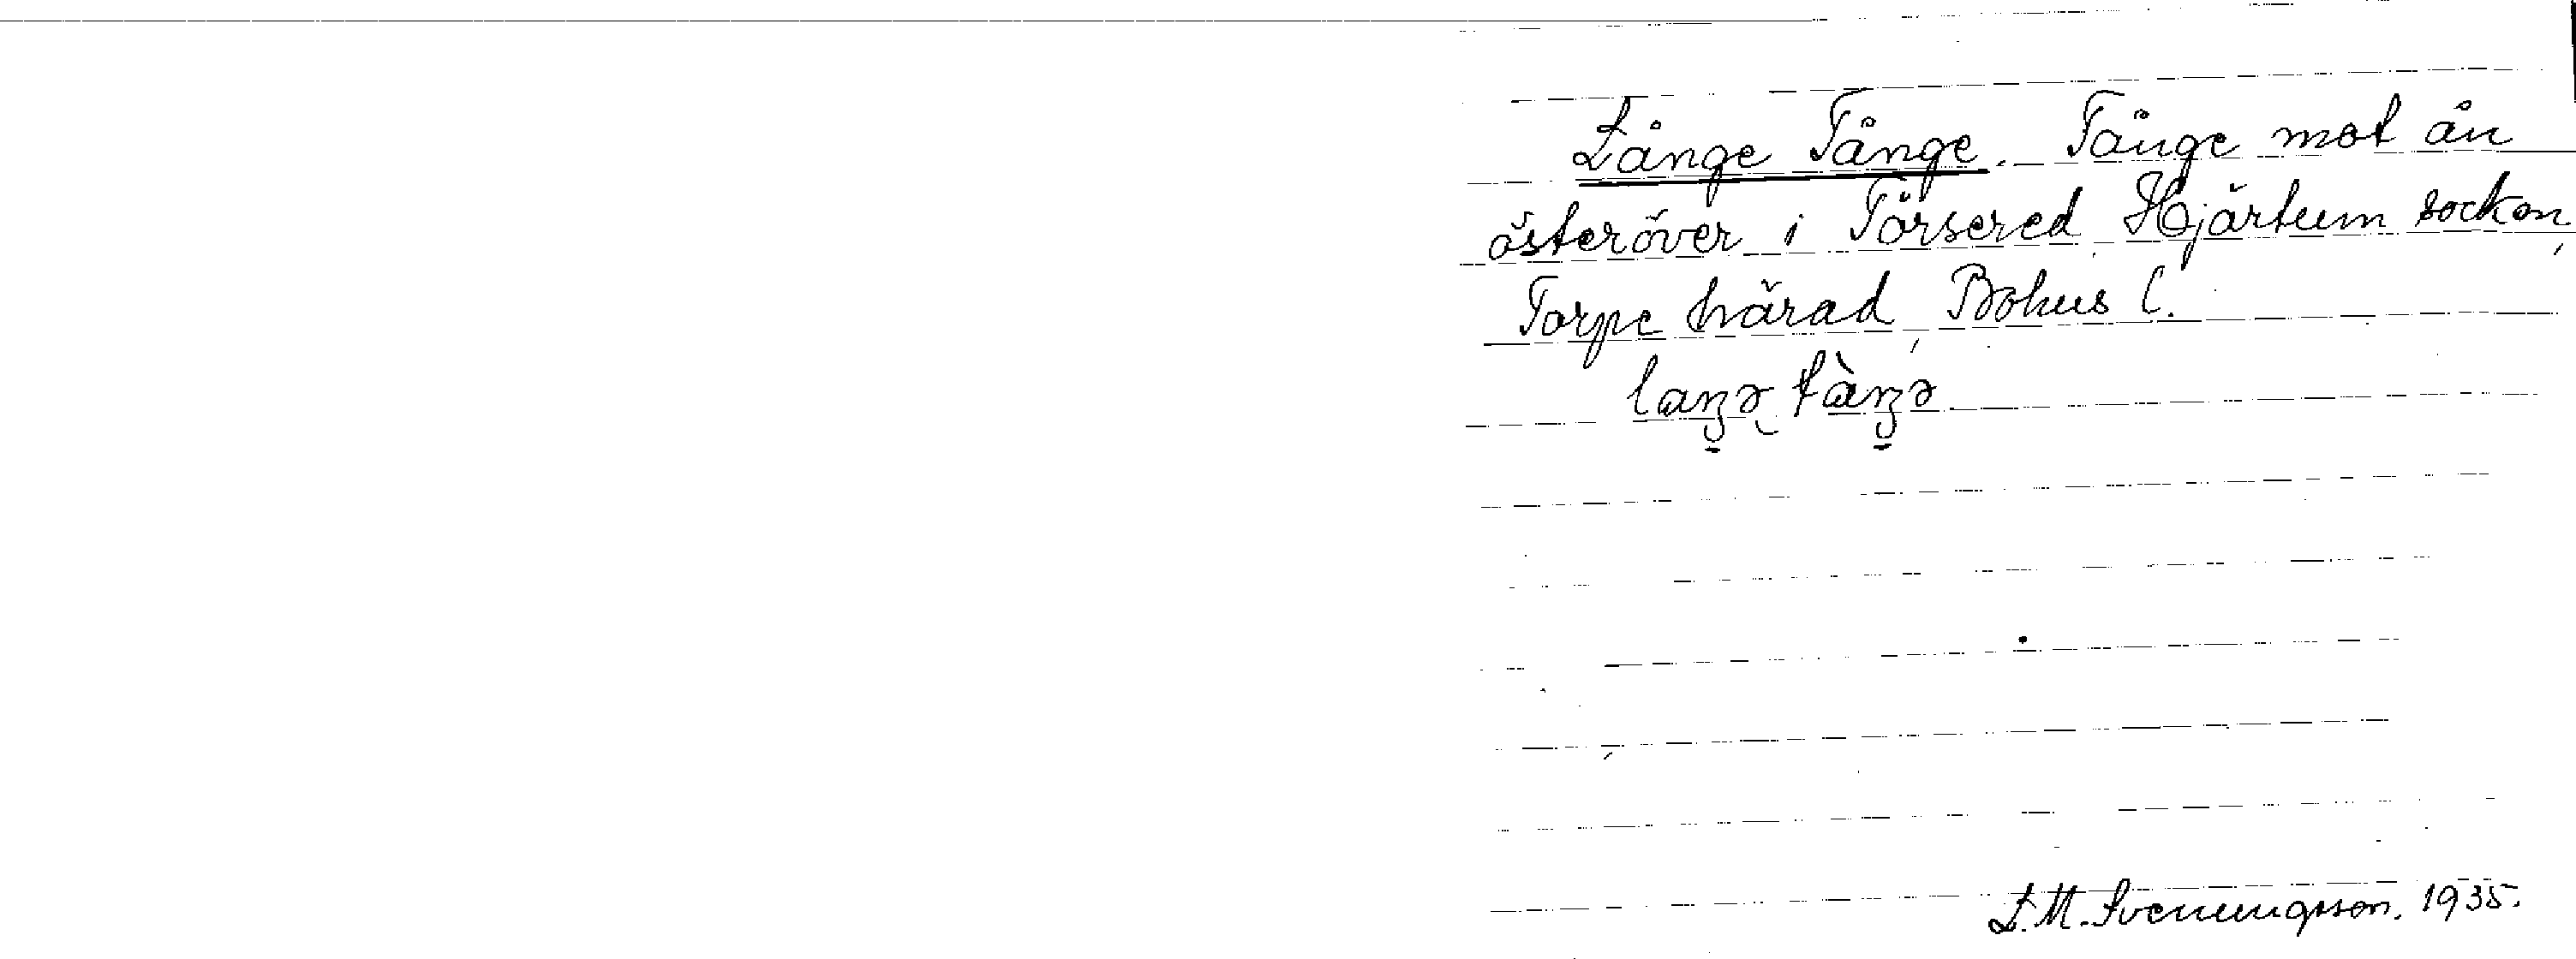 Långe Tånge. Tånge mot ån
österöver i Törsered Hjärtum socken,
Torpe härad, Bohus l.
L.M. Svenungsson. 1935.